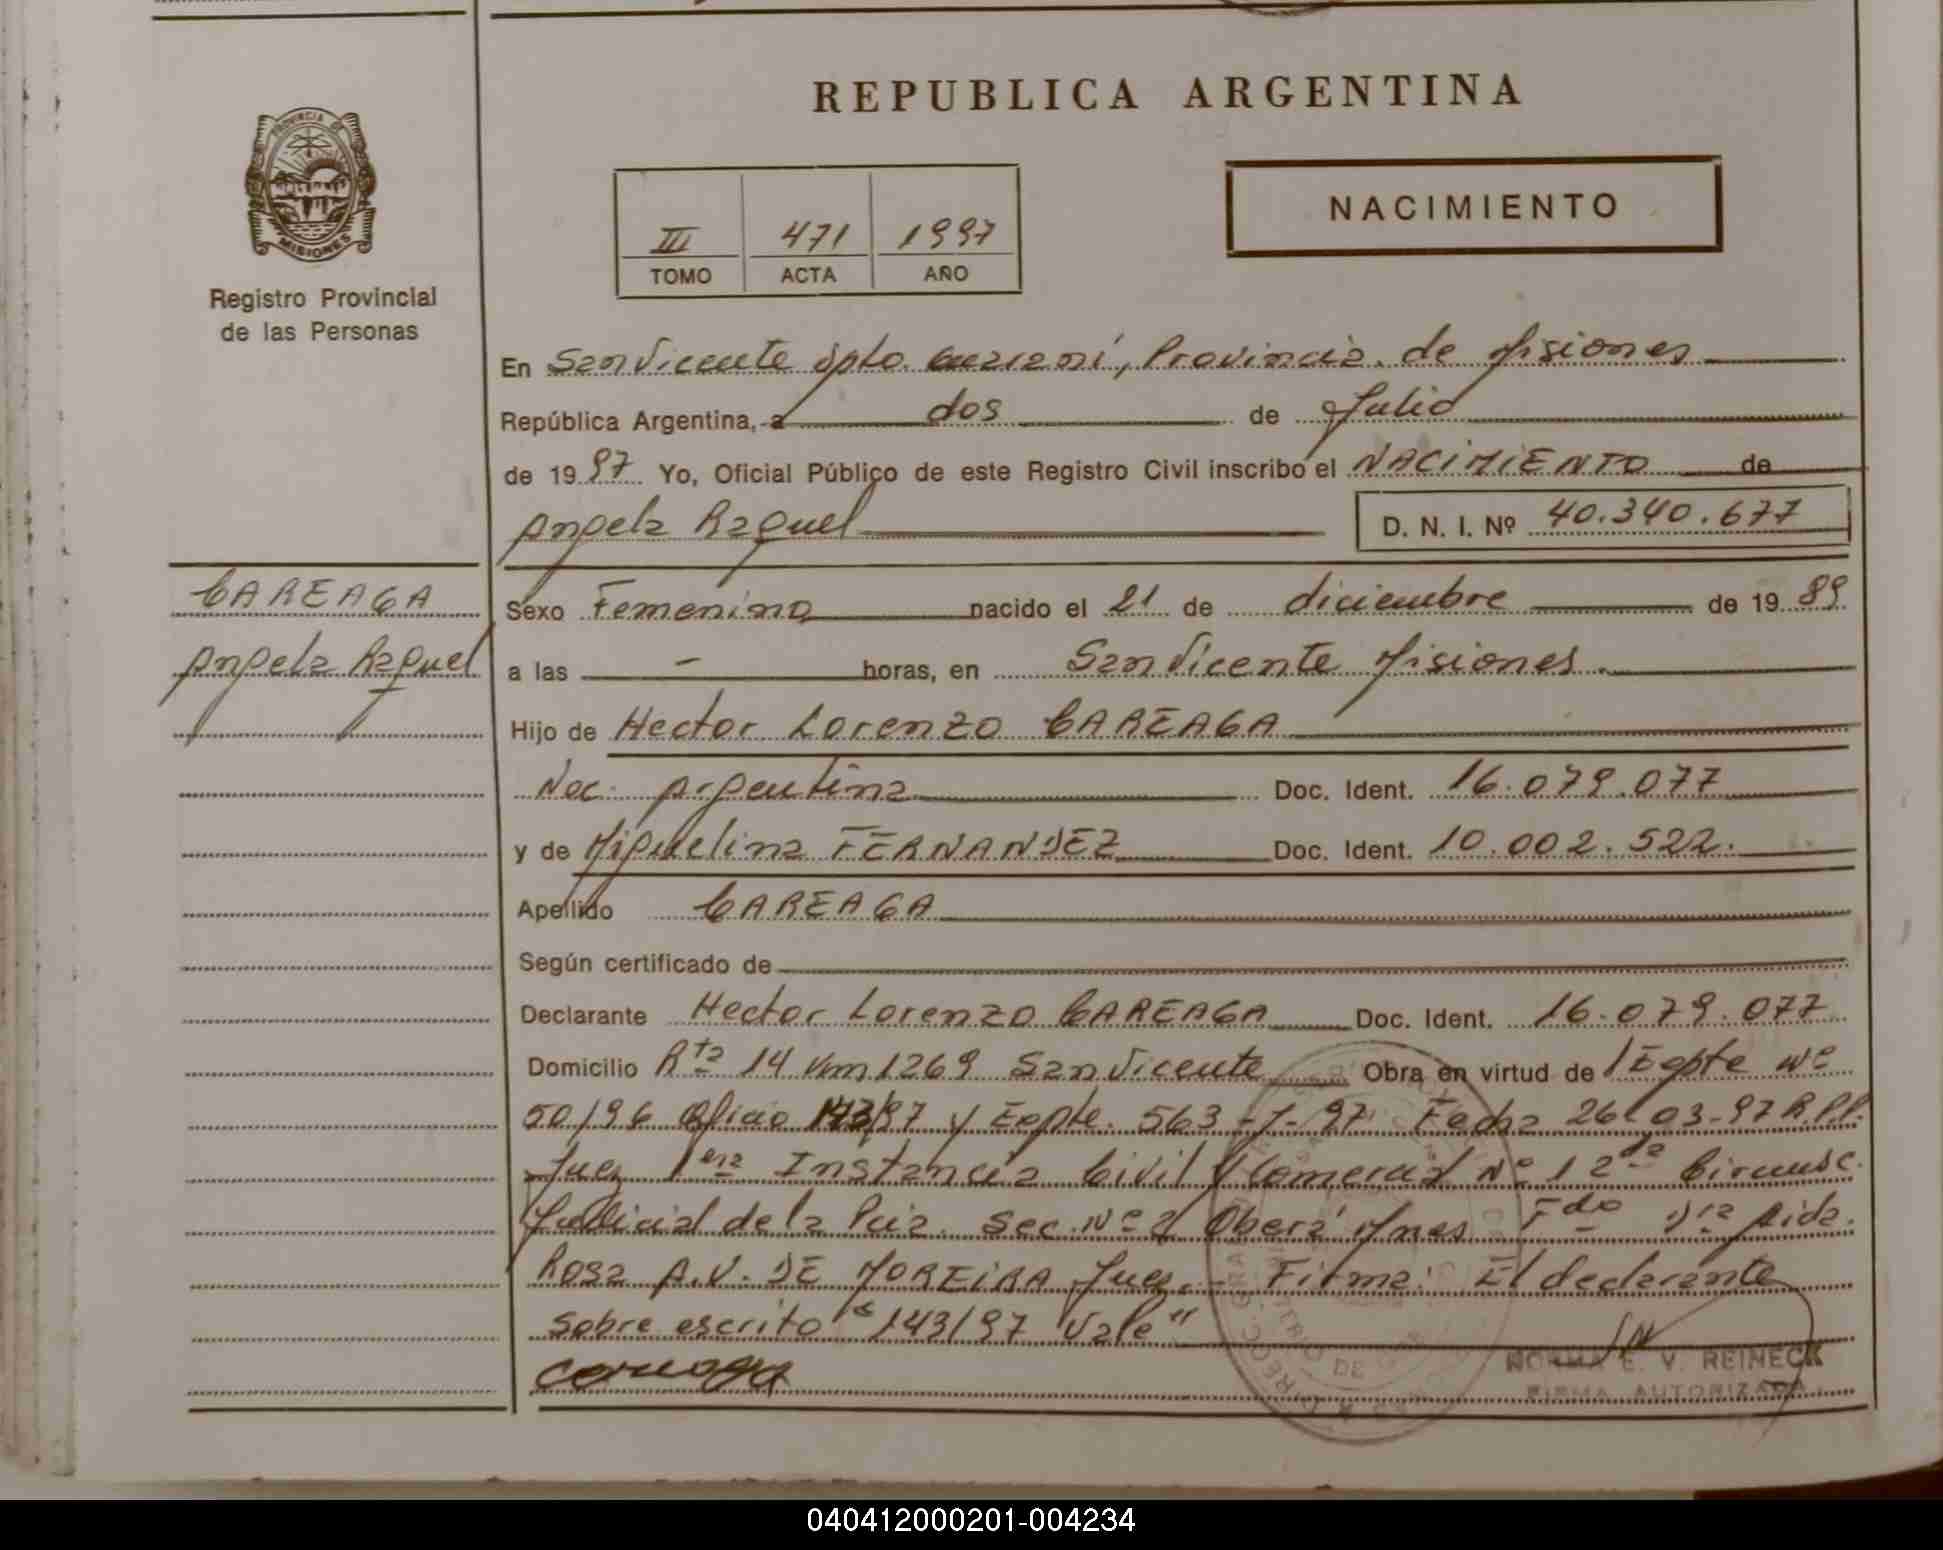 REPUBLICA ARGENTINA
PROVINCIA DE
MISIONES
Registro Provincial
de las Personas
III 471 1997
TOMO ACTA AÑO
NACIMIENTO
En San Vicente Dpto. Guaraní, Provincia de Misiones
República Argentina, a dos de Julio
de 1997 Yo, Oficial Público de este Registro Civil inscribo el NACIMIENTO de
Angela Raquel D. N. I. Nº 40.340.677
CAREAGA
Angela Raquel
Sexo Femenino nacido el 21 de diciembre de 1989
a las - horas, en San Vicente Misiones.
Hijo de Hector Lorenzo CAREAGA
Nac. Argentina Doc. Ident. 16.079.077
y de Miguelina FERNANDEZ Doc. Ident. 10.002.522.
Apellido CAREAGA
Según certificado de
Declarante Hector Lorenzo CAREAGA Doc. Ident. 16.079.077
Domicilio Rta 14 Km 1269 San Vicente Obra en virtud de Expte Nº
50/96 Oficio 143/97 y Expte. 563-7-97 Fecha 26-03-97 R.P.P.
Juez 1era Instancia Civil y Comercial Nº 1 2da Circunsc.
Judicial de la Pcia. Sec. Nº 2 Oberá Mnes Fdo Dra Aida
Rosa A.V. DE MOREIRA Juez.- Firma: El declarante
Sobre escrito "143/97 Vale"
careaga
NORMA E. V. REINECK
FIRMA AUTORIZADA
040412000201-004234